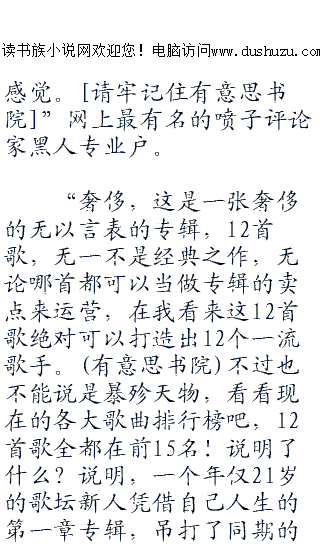 读书族小说网欢迎您！电脑访问www.dushuzu.com
感觉。[请牢记住有意思书
院]”网上最有名的喷子评论
家黑人专业户。
“奢侈，这是一张奢侈
的无以言表的专辑，12首
歌，无一不是经典之作，无
论哪首都可以当做专辑的卖
点来运营，在我看来这12首
歌绝对可以打造出12个一流
歌手。(有意思书院)不过也
不能说是暴殄天物，看看现
在的各大歌曲排行榜吧，12
首歌全都在前15名！说明了
什么？说明，一个年仅21岁
的歌坛新人凭借自己人生的
第一章专辑，吊打了同期的